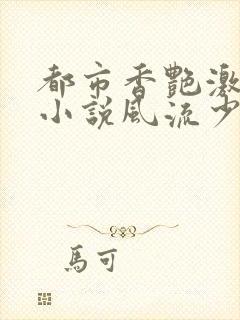 都市香艷激
小說風流少
馬可